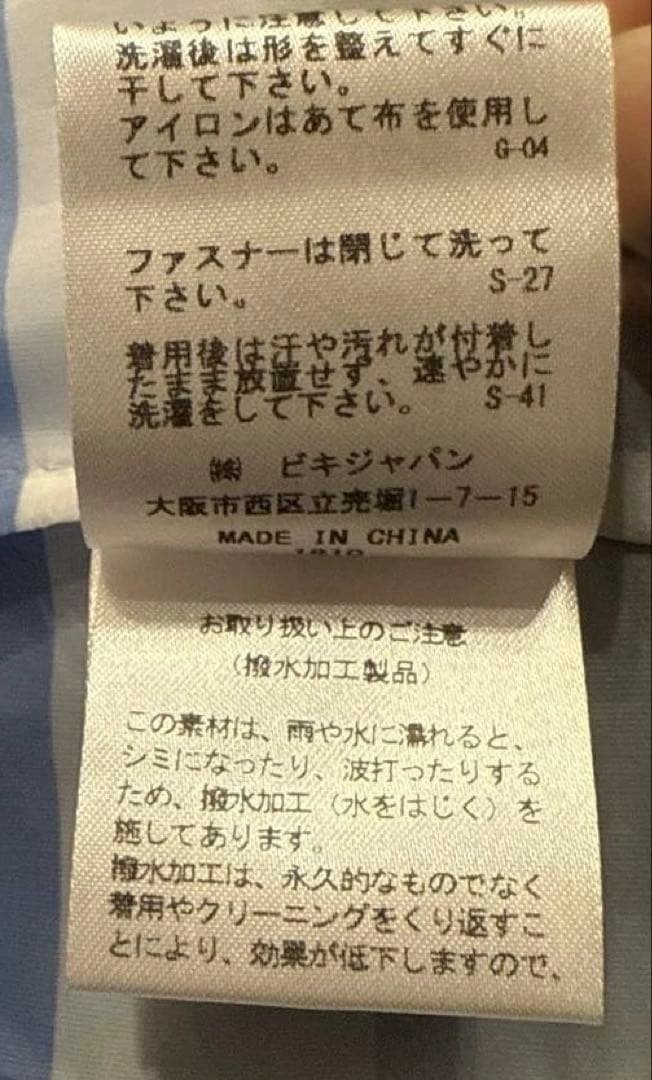 いように注意して下さい。
洗濯後は形を整えてすぐに
干して下さい。
アイロンはあて布を使用し
て下さい。 G-04
ファスナーは閉じて洗って
下さい。 S-27
着用後は汗や汚れが付着し
たまま放置せず、速やかに
洗濯をして下さい。 S-41
㈱ ビキジャパン
大阪市西区立売堀1-7-15
MADE IN CHINA
お取り扱い上のご注意
(撥水加工製品)
この素材は、雨や水に濡れると、
シミになったり、波打ったりする
ため、撥水加工(水をはじく)を
施してあります。
撥水加工は、永久的なものでなく
着用やクリーニングをくり返すこ
とにより、効果が低下しますので、